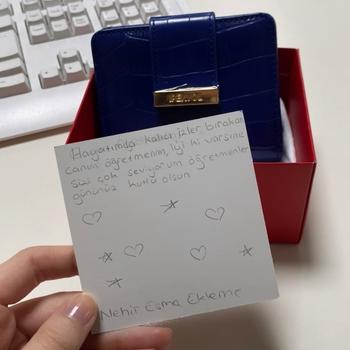 Hayatımda kalıcı izler bırakan
canım öğretmenim, İyi ki varsınız
sizi çok seviyorum öğretmenler
gününüz kutlu olsun
Nehir Esma Ekleme